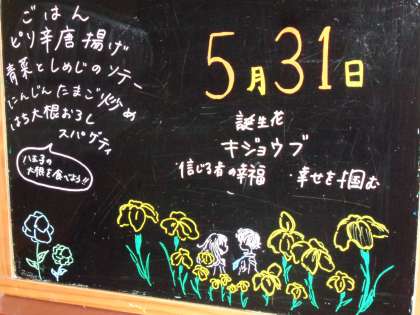 ごはん
ピリ辛唐揚げ
青菜としめじのソテー
にんじんたまご炒め
はち大根おろし
スパゲティ
八王子の
大根を食べよう!!
5月31日
誕生花
キショウブ
・信じる者の幸福 ・幸せを掴む